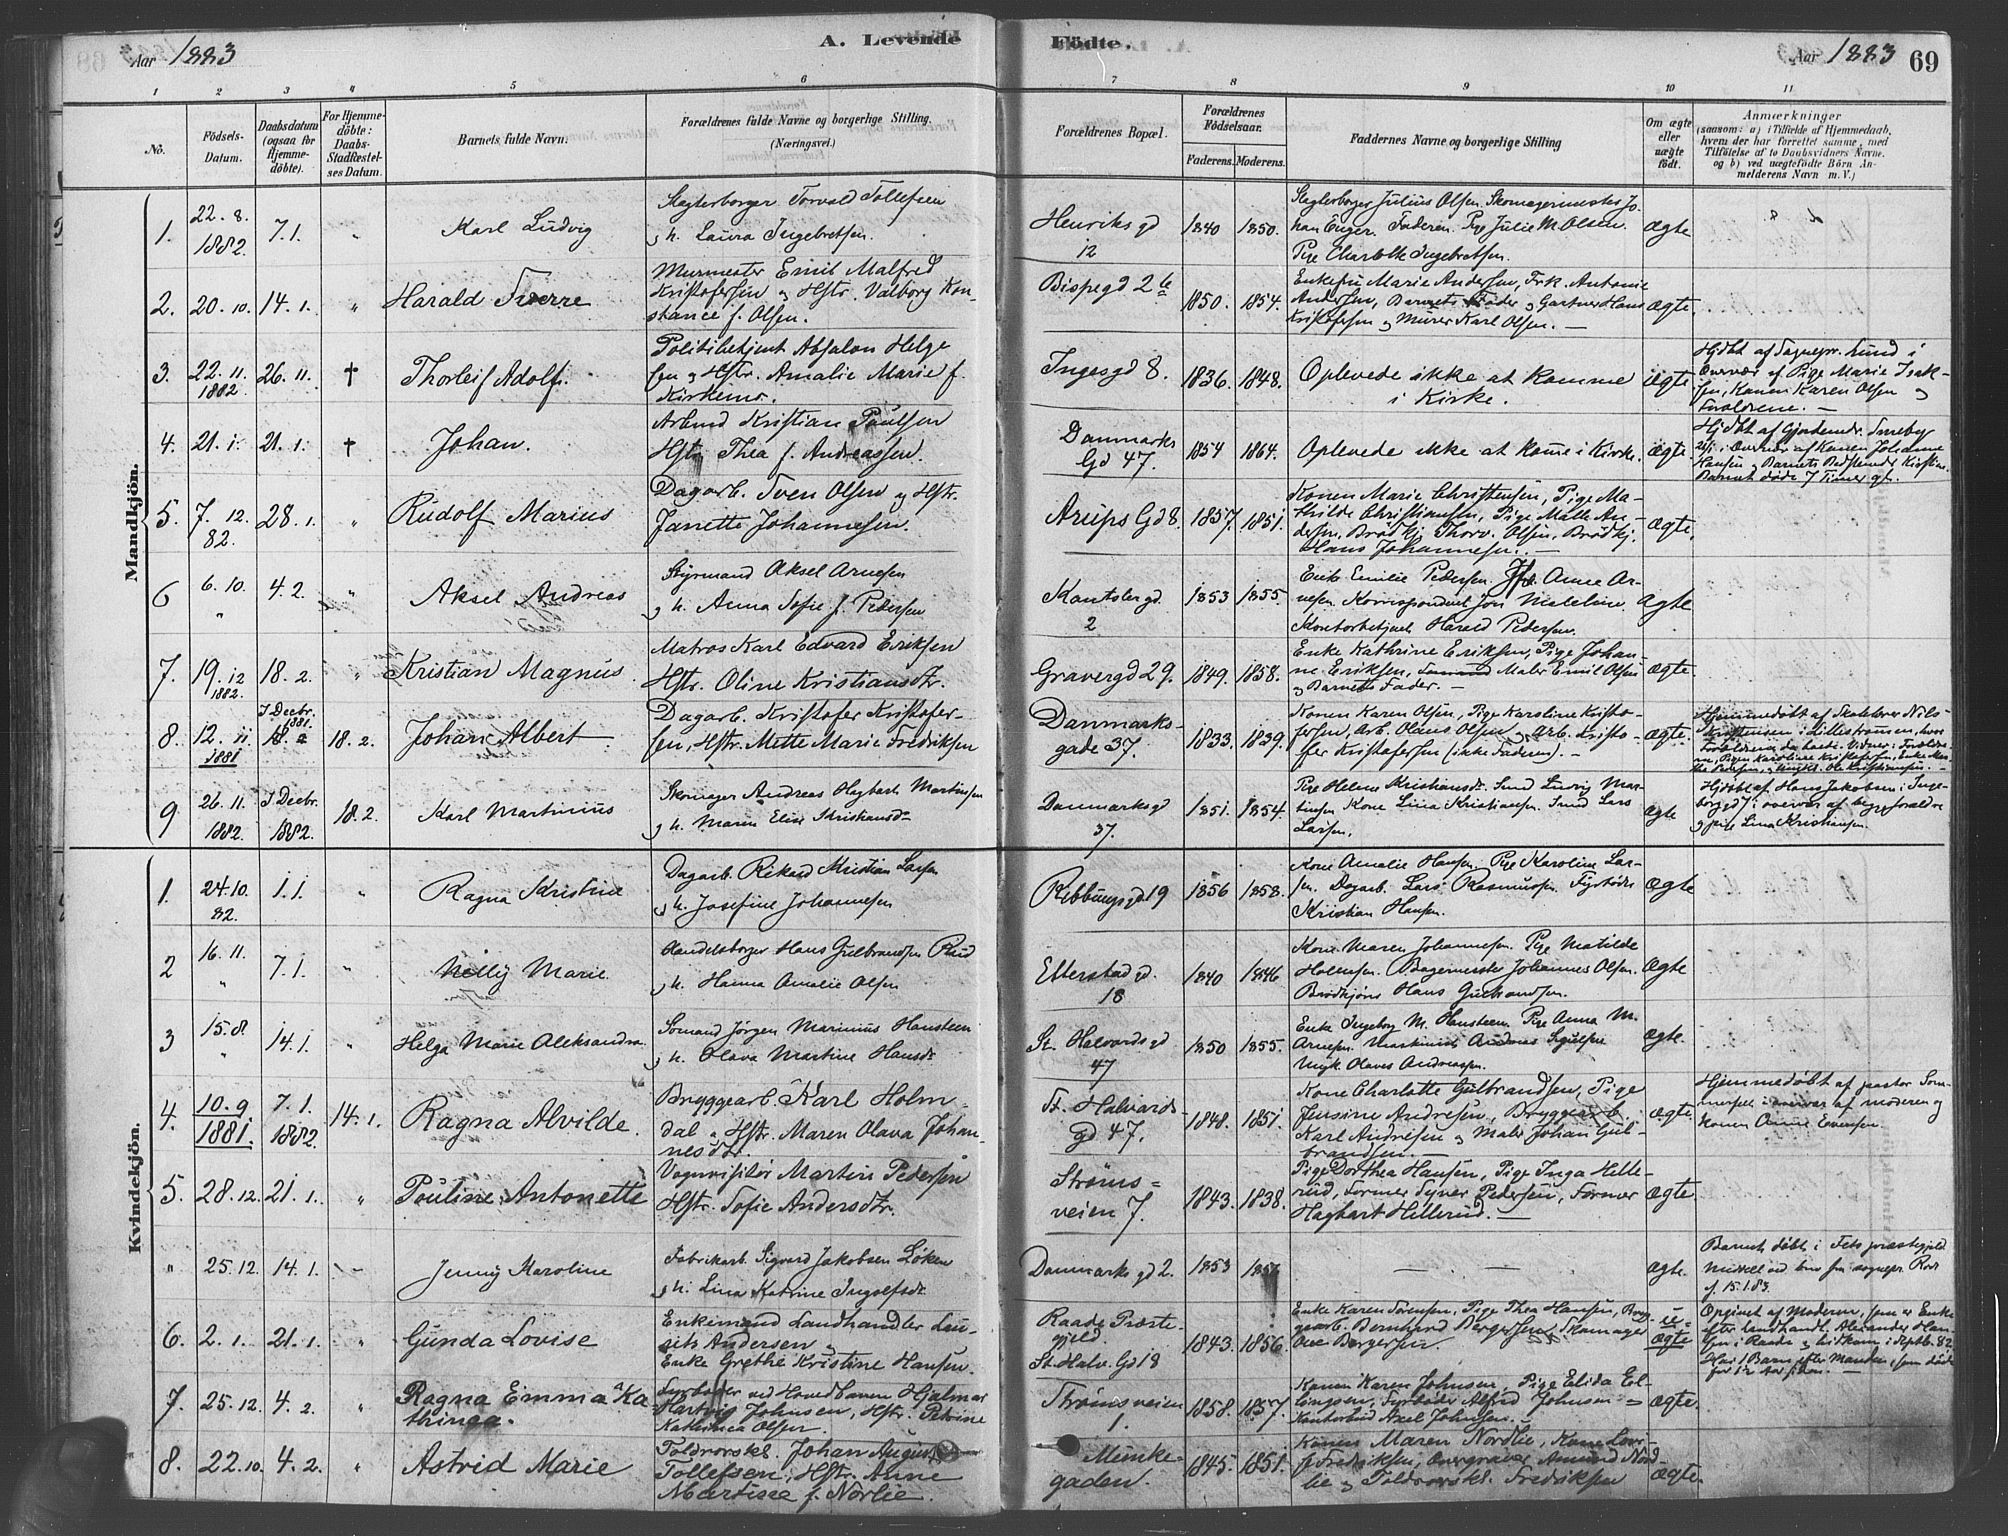 Aar 1883
A. Levende
Födte.
Aar 1883
69
1 2 3 4 5 6 7 8 9 10 11
No.
Födsels-
Datum.
Daabsdatum
(ogsaa for
Hjemme-
döbte).
For Hjemme-
döbte:
Daabs-
Stadfæstel-
ses Datum.
Barnets fulde Navn.
Forældrenes fulde Navne og borgerlige Stilling.
(Næringsvei.)
Forældrenes Bopæl.
Forældrenes
Födselsaar.
Faderens. Moderens.
Faddernes Navne og borgerlige Stilling
Om ægte
eller
uægte
födt.
Anmærkninger
(saasom: a) i Tilfælde af Hjemmedaab,
hvem der har forrettet samme, med
Tilföielse af to Daabsvidners Navne.
og b) ved uægtefödte Börn An-
melderens Navn m. V.)
Mandkjön.
1. 22. 8. 1882. 7. 1. " Karl Ludvig
Slagterborger Torvald Tollefsen
og h. Laura Ingebretsen.
Henriks gd
12
1840 1850.
Slagterborger Julius Olsen. Skomagermester Jo-
han Enger. Faderen. Pige Julie M. Olsen.
Pige Charlotte Ingebretsen.
Ægte
2. 20. 10. 14. 1. " Harald Sverre
Murmester Emil Malfred
Kristofersen og Hstr. Valborg Kon-
stance f. Olsen.
Bispegd 2b
1850. 1854.
Enkefru Marie Andersen, Frk. Antonie
Andersen, Barnets Fader og Gartner Hans
Kristofersen og Murer Karl Olsen. —
Ægte.
3. 22. 11. 1882 26. 11. † Thorleif Adolf.
Politibetjent Absalon Helge
sen og Hstr. Amalie Marie f.
Kirkemo.
Ingesgd 8.
1836. 1848.
Oplevede ikke at komme
i Kirke.
Ægte
Hjdbt af Sognepr. Lund i
Overvær af Pige Marie Isak-
sen, Konen Karen Olsen og
Forældrene. —
4. 21. 1. 21. 1. † Johan.
Arbmd Kristian Paulsen
Hstr. Thea f. Andreassen.
Danmarks
Gd 47.
1854 1864.
Oplevede ikke at komme i Kirke.
Ægte.
Hjdbt af Gjordemdr. Smeby
21/1 i Overvær af Konen Johanne
Hansen og Barnets Bedstemoder Kirstine.
Barnet døde 7 Timer gt.
5. 7. 12. 82. 28. 1. " Rudolf Marius
Dagarb. Sven Olsen og Hstr.
Janette Johannesen.
Arups Gd 8.
1857. 1851.
Konen Marie Christensen, Pige Ma-
thilde Christiansen, Pige Malle An-
dersen, Brödkj. Thorv. Olsen, Brödkj.
Hans Johannesen. —
Ægte.
6 6. 10. " 4. 2. " Aksel Andreas
Styrmand Aksel Arnesen
og h. Anna Sofie f. Pedersen
Kantslergd.
2
1853 1855.
Enke Emilie Pedersen. Jfr. Anne Ar-
nesen. Korrespondent Jon Madeline.
Kontorbetjent Harald Pedersen.
Ægte
7. 19. 12 1882. 18. 2. " Kristian Magnus
Matros Karl Edvard Eriksen
Hstr. Oline Kristiansdtr.
Gravergd 29.
1849. 1858.
Enke Kathrine Eriksen, Pige Johan-
ne Eriksen, Maler Emil Olsen
og Barnets Fader. —
Ægte.
8. 12. 11 1881 I Decbr. 1881. 18. 2 18. 2. Johan Albert
Dagarb. Kristofer Kristofer-
sen, Hstr. Mette Marie Fredriksen
Danmarks-
gade 37.
1833. 1839.
Konen Karen Olsen, Pige Karoline Kristo-
fersen, Arb. Olaus Olsen og Arb. Kristo-
ffer Kristofersen (ikke Faderen). —
Ægte.
Hjemmedöbt af Skolelærer Nils
Kristensen i Lillestrømmen, hvor
Forældrene da boede. Vidner: Forældre-
ne, Pigen Karoline Kristofersen,
9 26. 11. 1882. I Decbr. 1882. 18. 2. Karl Martinius
Skomager Andreas Hagbart Martinsen
og h. Maren Elise Kristiansdtr
Danmarksgd
37.
1851. 1854.
Pige Helene Kristiansdtr. Smed Ludvig Mar-
tinsen Kone Lina Kristiansen. Smed Lars
Larsen.
Ægte
Hjdöbt af Hans Jakobsen i Inge-
borggd 7 i overvær af begge forældre
og pige Lina Kristiansen.
Kvindekjön.
1. 24. 10. 82. 1. 1. " Ragna Kristine
Dagarb. Rikard Kristian Larsen
og h. Josefine Johannesen
Ribbungsgd 19
1856 1858.
Kone Amalie Hansen. Pige Karoline Lar-
sen. Dagarb. Lars Rasmussen. Fyrbøder
Kristian Hansen.
Ægte
2 16. 11. " 7. 1. " Nelly Marie
Handelsborger Hans Gulbrandsen Rud
og h. Hanna Amalie Olsen
Etterstad gd.
18
1840 1846
Kone Maren Johannesen. Pige Matilde
Halvorsen. Bagermester Johannes Olsen.
Brödkjører Hans Gulbrandsen.
Ægte
3 15. 8. " 14. 1. " Helga Marie Aleksandra
Sömand Jørgen Marinius Hansteen
og h. Olava Martine Hansdtr
St. Halvardsgd
47
1850 1855.
Enke Ingeborg M. Hansteen. Pige Anna M.
Arnesen. Maskinist Andreas Sjulsen
Ungk. Olaves Andreassen.
Ægte.
4. 10. 9. 1881. 7. 1. 1882. 14. 1. Ragna Alvilde.
Bryggearb. Karl Holm-
dal og Hstr. Maren Olava Johan-
nesdtr.
St. Halvards-
gd 47.
1848. 1851.
Kone Charlotte Gulbrandsen, Pige
Jensine Andresen, Bryggearb.
Karl Andresen og Maler Johan Gul-
brandsen. —
Ægte
Hjemmedöbt af pastor Som-
merfelt i overvær af moderen og
Konen Anne Evensen.
5. 28. 12. 21. 1. " Pauline Antonette
Vognvisitör Martin Pedersen
Hstr. Sofie Andersdtr.
Ströms-
veien 7.
1843. 1838.
Pige Dorthea Hansen, Pige Inga Hille-
rud, Former Syver Pedersen, Former
Hagbart Hillerud. —
Ægte
" 25. 12. 14. 1. — Jenny Karoline
Fabrikarb. Sigvard Jakobsen Løken
og h. Lina Katrine Ingolfsdtr
Danmarks gd 2.
1853
— — —
Ægte.
Barnet döbt i Fets præstegjeld
f. 15.1.83.
6. 2. 1. 21. 1. " Gunda Lovise
Enkemand Landhandler Lau-
rits Andersen og
Enke Grethe Kristine Hansen.
Raade Præste-
gjeld.
St. Halv. Gd 18
1843. 1856.
Enke Karen Sørensen, Pige Thea Hansen, Bryg-
gearb. Bernhard Bergersen, Skomager
Ove Bergersen.
u-
ægte
Opgivet af Moderen, som er Enke
efter Landhandl. Alexander Han-
sen i Raade og hidkom i Septbr. 82.
Har 1 Barn efter Manden, som døde
for 1½ Aar siden. —
7. 25. 12. 4. 2. " Ragna Emma Ka-
thinca.
Fyrbøder ved Hovedbanen Hjalmar
Hartvig Johnsen, Hstr. Petrine
Kathinca Olsen.
Strømsveien
1.
1858. 1857.
Konen Karen Johnsen, Pige Elida El-
lingsen, Fyrbøder Alfred Johnsen og
Kontorbud Axel Johnsen. —
Ægte.
8. 22. 10. 4. 2. " Astrid Marie
Toldrorskl. Johan August
Tollefsen, Hstr. Anne
Martine f. Norlie.
Munke-
gaden
1845. 1851.
Konen Maren Nordlie, Kone Lovi-
se Fredriksen, Overgraver Amund Nord
lie og Toldrorskl. Fredriksen
Ægte.